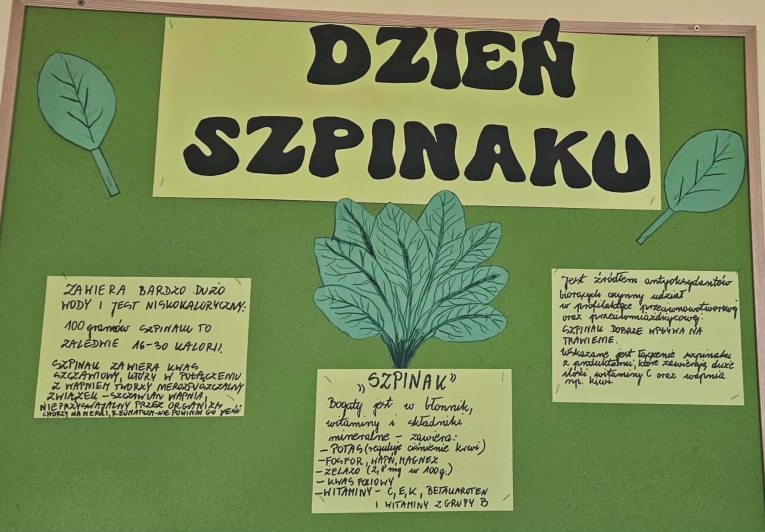 DZIEŃ
SZPINAKU
ZAWIERA BARDZO DUŻO
WODY I JEST NISKOKALORYCZNY.
100 gramów SZPINAKU TO
ZALEDWIE 16-30 KALORII.
SZPINAK ZAWIERA KWAS
SZCZAWIOWY, KTÓRY W POŁĄCZENIU
Z WAPNIEM TWORZY NIEROZPUSZCZALNY
ZWIĄZEK - SZCZAWIAN WAPNIA,
NIEPRZYSWAJALNY PRZEZ ORGANIZM.
CHORZY NA NERKI, REUMATYZM - NIE POWINNI GO JEŚĆ
„SZPINAK"
Bogaty jest w błonnik,
witaminy i składniki
mineralne - zawiera:
- POTAS (reguluje ciśnienie krwi)
- FOSFOR, WAPŃ, MAGNEZ
- ŻELAZO (2,8 mg w 100g.)
- KWAS FOLIOWY
- WITAMINY - C, E, K, BETAKAROTEN
I WITAMINY Z GRUPY B
Jest źródłem antyoksydantów
biorących czynny udział
w profilaktyce przeciwnowotworowej
oraz przeciwmiażdżycowej.
SZPINAK DOBRZE WPŁYWA NA
TRAWIENIE.
Wskazane jest łączenie szpinaku
z produktami, które zawierają duże
ilości witaminy C oraz wapnia
np. kiwi.